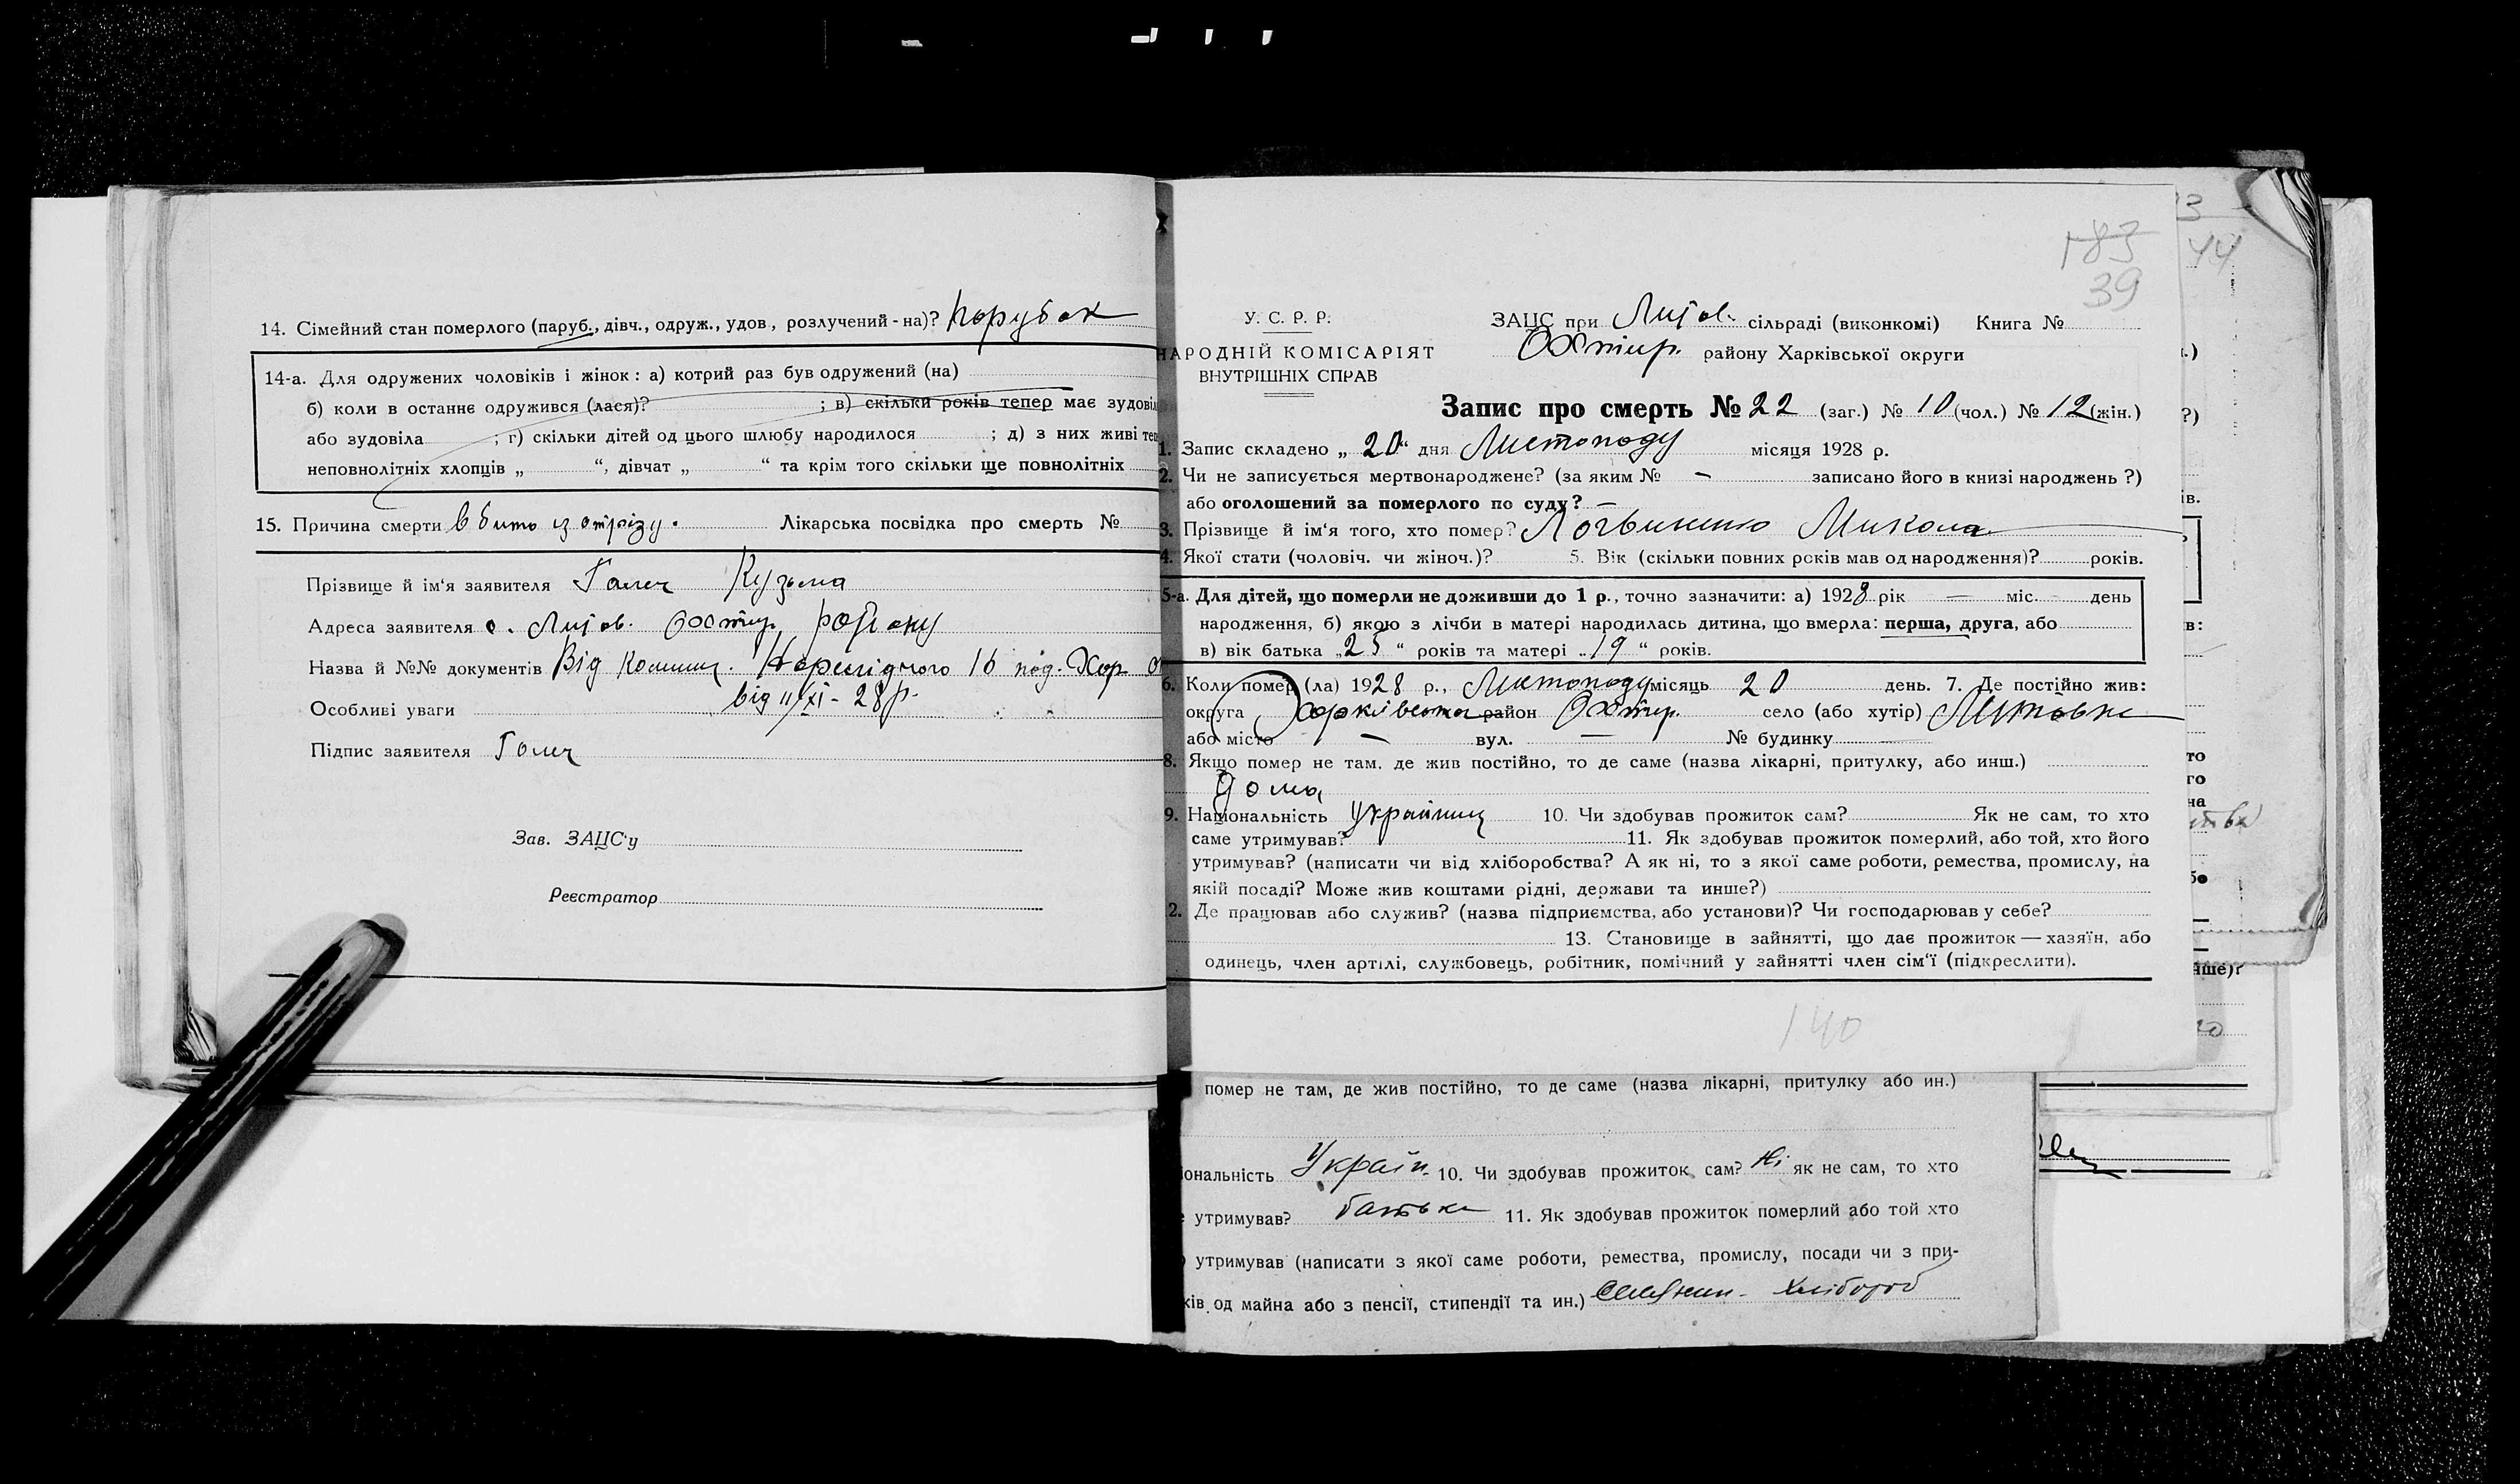 14. Сімейний стан померлого (паруб., дівч., одруж., удов., розлучений - на)? Парубок
14-а. Для одружених чоловіків і жінок: а) котрий раз був одружений (на)
б) коли в останнє одружився (лася)? ; в) скільки років тепер має зудовіл
або зудовіла ; г) скільки дітей од цього шлюбу народилося ; д) з них живі теп
неповнолітніх хлопців „ “, дівчат „ “ та крім того скільки ще повнолітніх
15. Причина смерти вбито із отрізу. Лікарська посвідка про смерть №
Прізвище й ім‘я заявителя Галич Кузьма
Адреса заявителя с. Охтир. району
Назва й №№ документів Від 16 Хар
від 11/XI - 28 р.
Особливі уваги
Підпис заявителя Галич
Зав. ЗАЦС‘у
Реєстратор
183
39
У. С. Р. Р.
НАРОДНІЙ КОМІСАРІЯТ
ВНУТРІШНІХ СПРАВ
ЗАЦС при сільраді (виконкомі) Книга №
Охтир. району Харківської округи
Запис про смерть № 22 (заг.) № 10 (чол.) № 12 (жін.)
1. Запис складено „ 20 “ дня Листопаду місяця 1928 р.
2. Чи не записується мертвонароджене? (за яким № – записано його в книзі народжень ?)
або оголошений за померлого по суду? –
3. Прізвище й ім‘я того, хто помер? Логвиненко Микола
4. Якої стати (чоловіч. чи жіноч.)? 5. Вік (скільки повних років мав од народження)? років.
5-а. Для дітей, що померли не доживши до 1 р., точно зазначити: а) 1928 рік — міс. день
народження, б) якою з лічби в матері народилась дитина, що вмерла: перша, друга, або
в) вік батька „ 25 “ років та матері „ 19 “ років.
6. Коли помер (ла) 1928 р., Листопаду місяць 20 день. 7. Де постійно жив:
округа Харківська район Охтир. село (або хутір) Литовка
або місто – вул. — № будинку —
8. Якщо помер не там, де жив постійно, то де саме (назва лікарні, притулку, або инш.)
Дома
9. Національність Українец 10. Чи здобував прожиток сам? Як не сам, то хто
саме утримував? 11. Як здобував прожиток померлий, або той, хто його
утримував? (написати чи від хліборобства? А як ні, то з якої саме роботи, ремества, промислу, на
якій посаді? Може жив коштами рідні, держави та инше?)
12. Де працював або служив? (назва підприємства, або установи)? Чи господарював у себе?
13. Становище в зайнятті, що дає прожиток — хазяїн, або
одинець, член артілі, службовець, робітник, помічний у зайнятті член сім‘ї (підкреслити).
140
помер не там, де жив постійно, то де саме (назва лікарні, притулку або ин.)
іональність Україн. 10. Чи здобував прожиток сам? Ні як не сам, то хто
утримував? батько 11. Як здобував прожиток померлий або той хто
утримував (написати з якої саме роботи, ремества, промислу, посади чи з при-
ків од майна або з пенсії, стипендії та ин.) Селянин - хлібороб
44